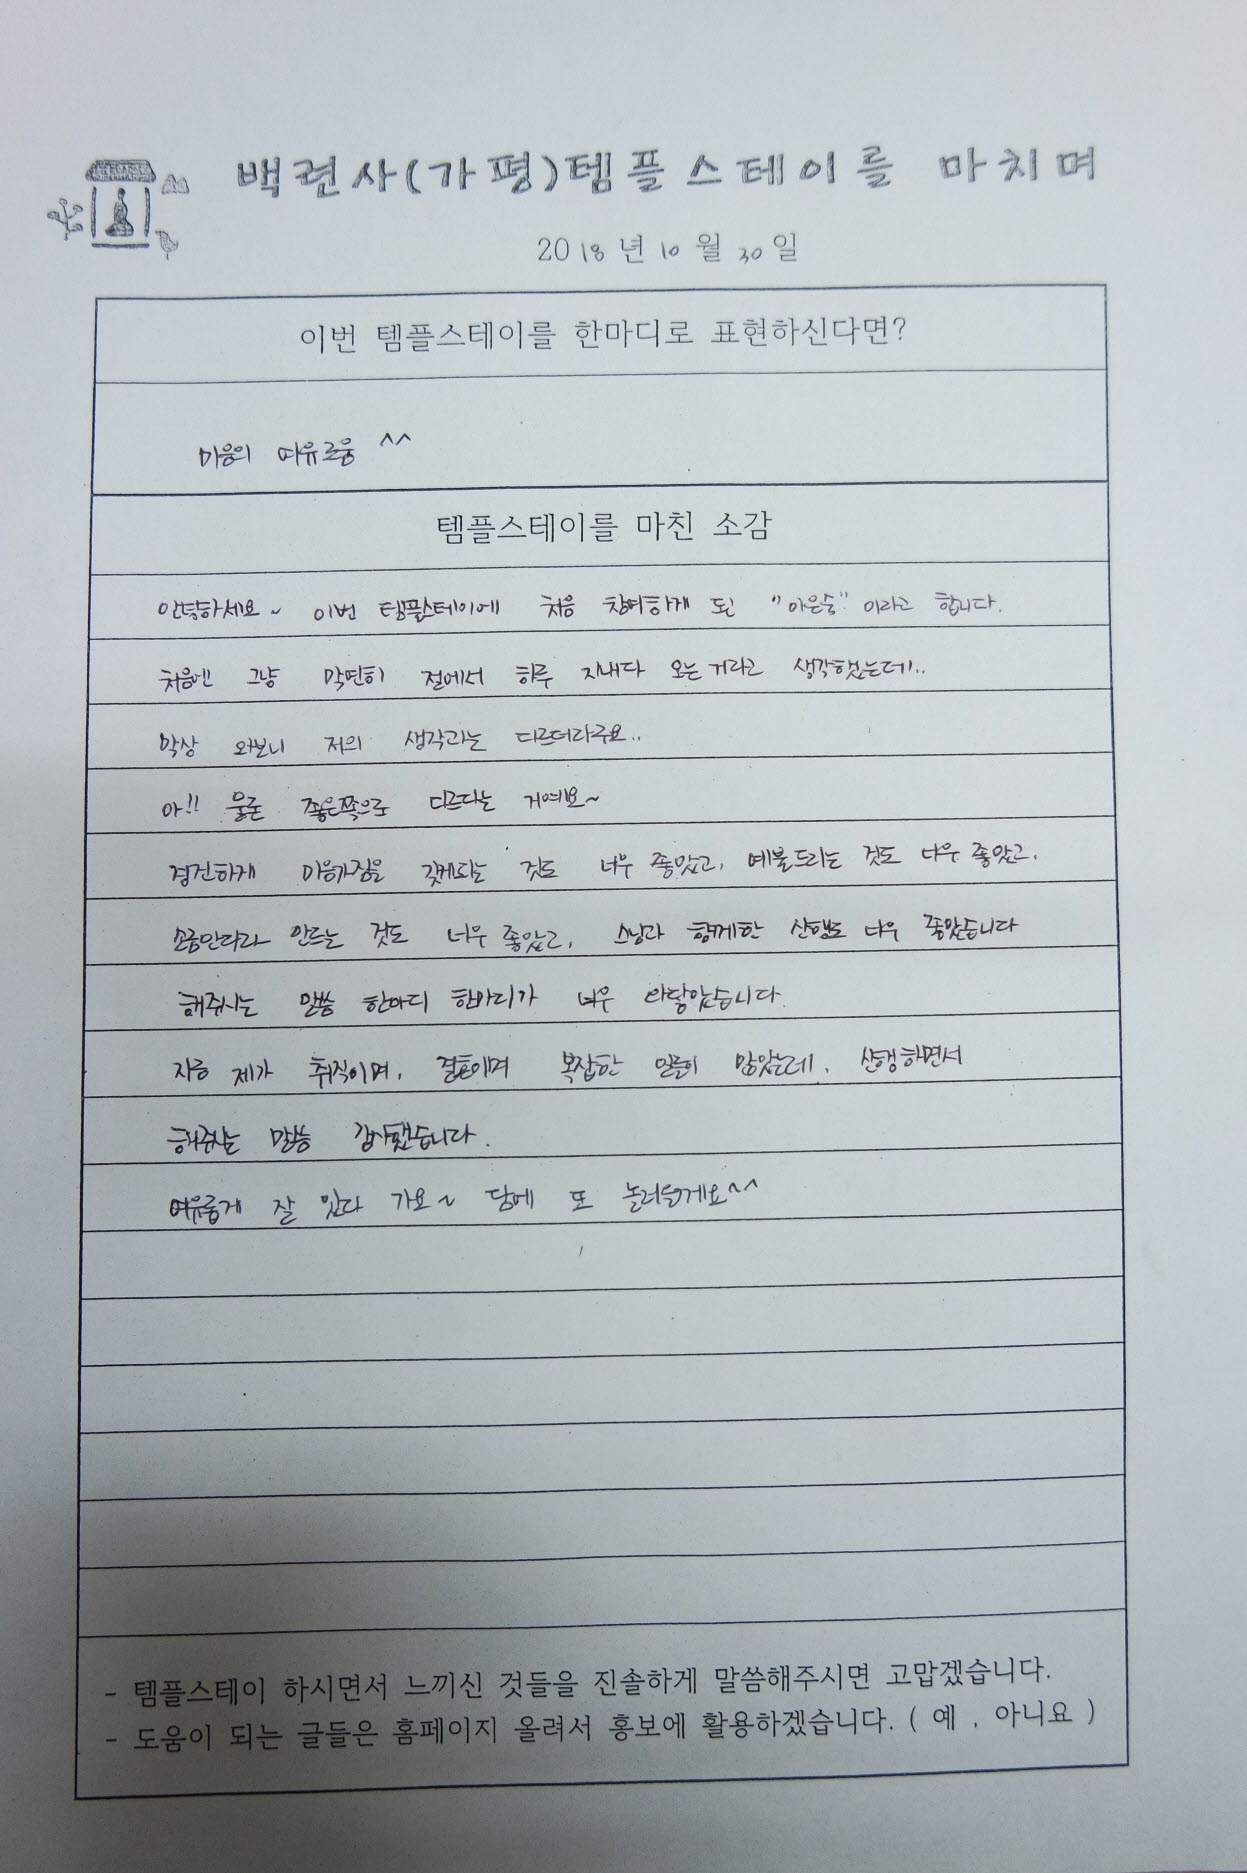 백련사(가평)템플스테이를 마치며
2018년 10월 30일
이번 템플스테이를 한마디로 표현하신다면?
마음의 여유로움 ^^
템플스테이를 마친 소감
안녕하세요~ 이번 템플스테이에 처음 참여하게 된 "이은숙" 이라고 합니다.
처음엔 그냥 막연히 절에서 하루 지내다 오는거라고 생각했는데..
막상 와보니 저의 생각과는 다르더라구요..
아!! 물론 좋은쪽으로 다르다는 거예요~
경건하게 마음가짐을 갖게되는 것도 너무 좋았고, 예불드리는 것도 너무 좋았고,
소금만다라 만드는 것도 너무 좋았고, 스님과 함께한 산행도 너무 좋았습니다
해주시는 말씀 한마디 한마디가 너무 와닿았습니다.
지금 제가 취직이며, 결혼이며 복잡한 일들이 많았는데, 산행하면서
해주시는 말씀 감사했습니다.
여유롭게 잘 있다 가요~ 담에 또 놀러올게요^^
- 템플스테이 하시면서 느끼신 것들을 진솔하게 말씀해주시면 고맙겠습니다.
- 도움이 되는 글들은 홈페이지 올려서 홍보에 활용하겠습니다. ( 예 , 아니요 )